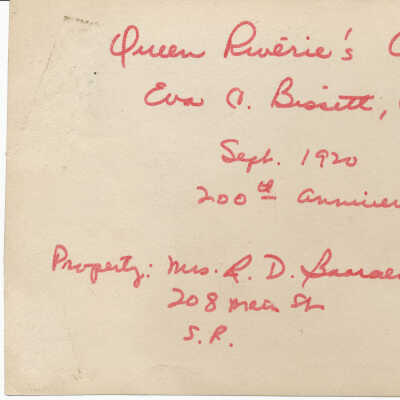 Queen Rivērie's C
Eva A. Bissett,
Sept. 1920
200th Anniver
Property: Mrs. R. D.
208 Main St
S.R.